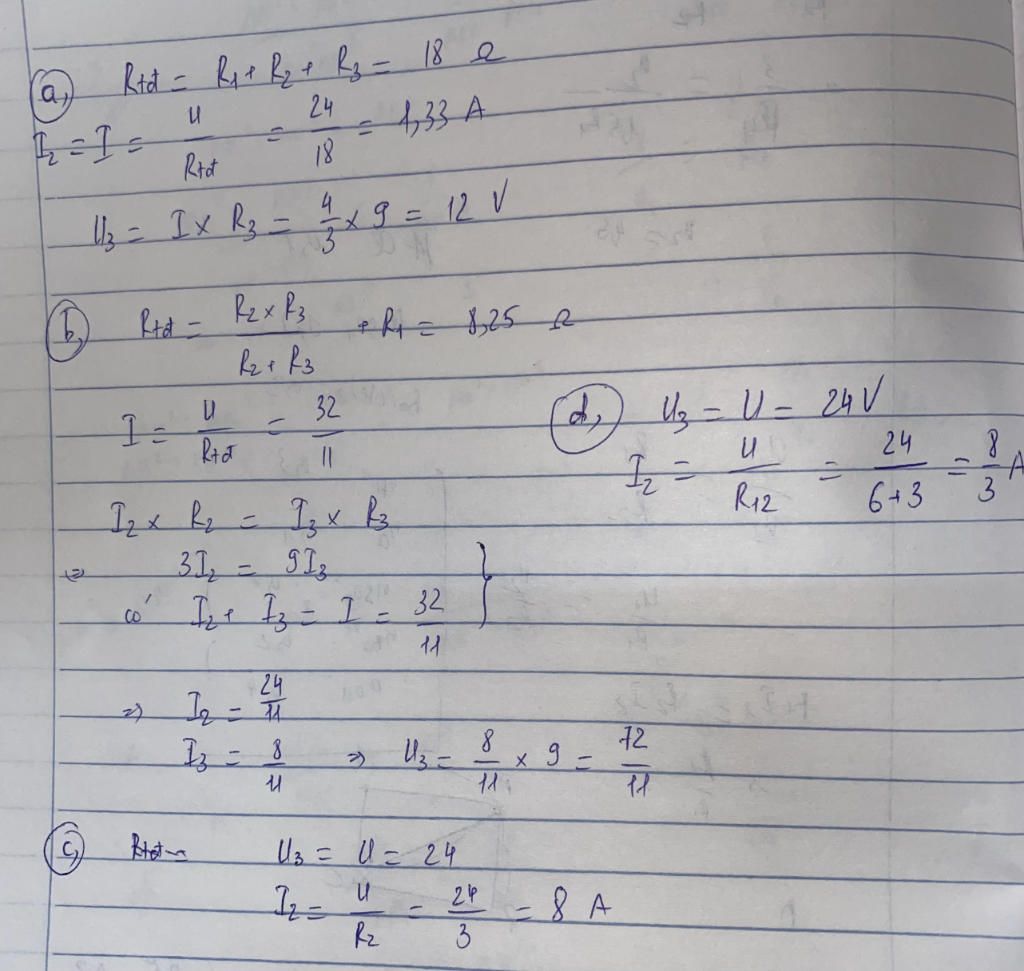 a, Rtđ = R1 + R2 + R3 = 18 Ω
I2 = I = U/Rtđ = 24/18 = 1,33 A
U3 = I x R3 = 4/3 x 9 = 12 V
b, Rtđ = (R2 x R3)/(R2 + R3) + R1 = 8,25 Ω
I = U/Rtđ = 32/11
I2 x R2 = I3 x R3
=> 3I2 = 9I3 }
có I2 + I3 = I = 32/11
=> I2 = 24/11
I3 = 8/11 => U3 = 8/11 x 9 = 72/11
c, Rtđ = U3 = U = 24
I2 = U/R2 = 24/3 = 8 A
d, U3 = U = 24V
I2 = U/R12 = 24/(6+3) = 8/3 A